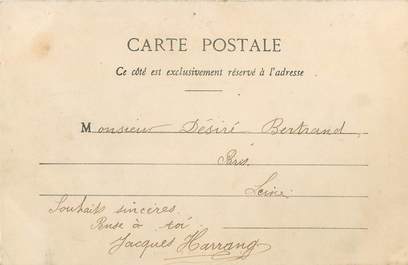 CARTE POSTALE
Ce côté est exclusivement réservé à l'adresse
Monsieur Désiré Bertrand
Seine
Souhaits sincères
Pense à toi
Jacques Harrang